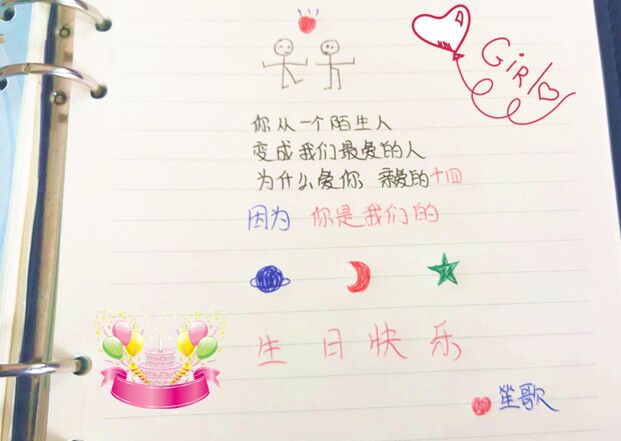 GirL
你从一个陌生人
变成我们最爱的人
为什么爱你 亲爱的十四
因为 你是我们的
生日快乐
笙歌